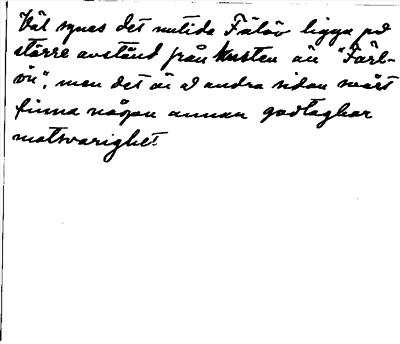 Väl synes det nutida Fälöv ligga på
större avstånd från kusten än "Färl-
ön", men det är å andra sidan svårt
finna någon annan godtagbar
motsvarighet